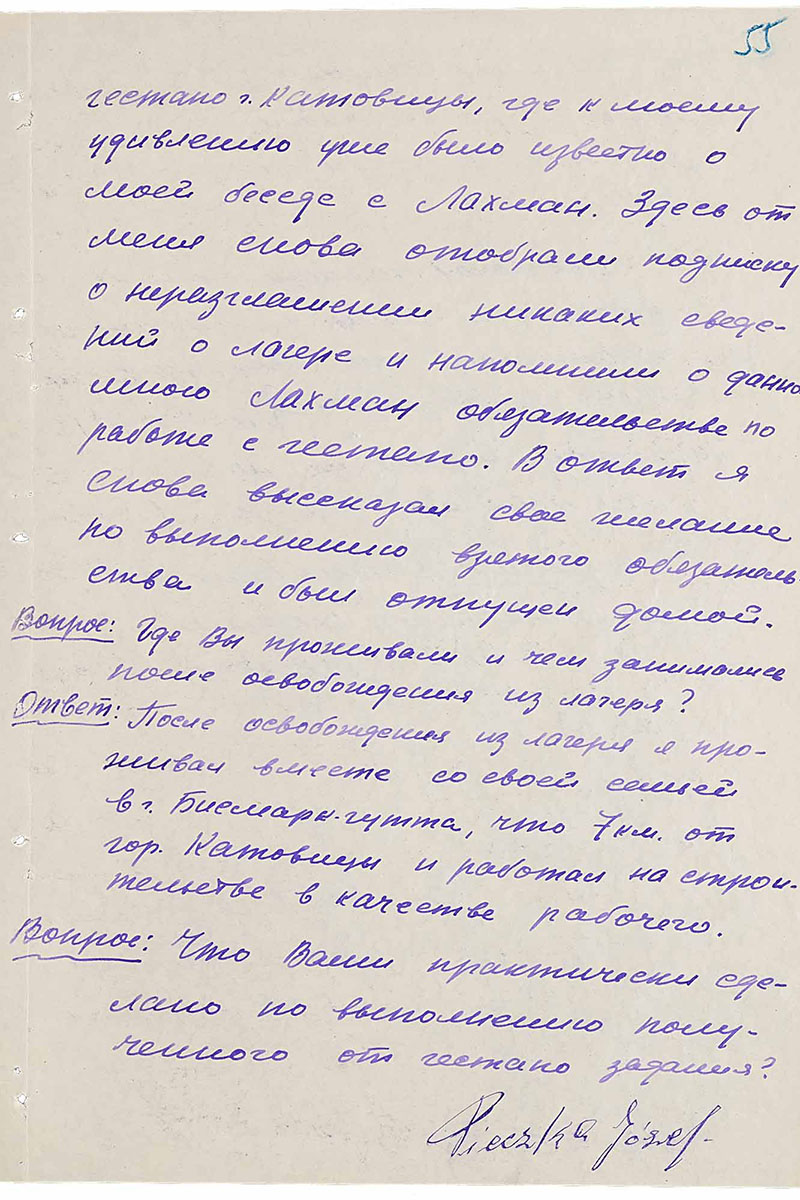 55
гестапо г. Катовицы, где к моему
удивлению уже было известно о
моей беседе с Лахман. Здесь от
меня снова отобрали подписку
о неразглашении никаких сведе-
ний о лагере и напомнили о данно
мною Лахман обязательстве по
работе с гестапо. В ответ я
снова высказал свое желание
по выполнению взятого обязатель
ства и был отпущен домой.
Вопрос: Где Вы проживали и чем занимались
после освобождения из лагеря?
Ответ: После освобождения из лагеря я про-
живал вместе со своей семьей
в г. Бисмарк-гутта, что 7 км. от
гор. Катовицы и работал на строи-
тельстве в качестве рабочего.
Вопрос: Что Вами практически сде-
лано по выполнению полу-
ченного от гестапо задания?
Pieczka Józef.